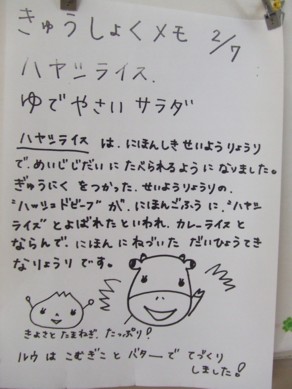 きゅうしょくメモ 2/7
ハヤシライス.
ゆでやさいサラダ
ハヤシライスは、にほんしきせいようりょうり
で、めいじじだいにたべられるようになりました。
ぎゅうにくをつかった、せいようりょうりの、
"ハッシュドビーフ"が、にほんごふうに、"ハヤシ
ライズ"とよばれたといわれ、カレーライスと
ならんで、にほんにねづいただいひょうてき
なりょうりです。
きよさとたまねぎ、たっぷり!
ルウはこむぎことバターでてづくり
しました!